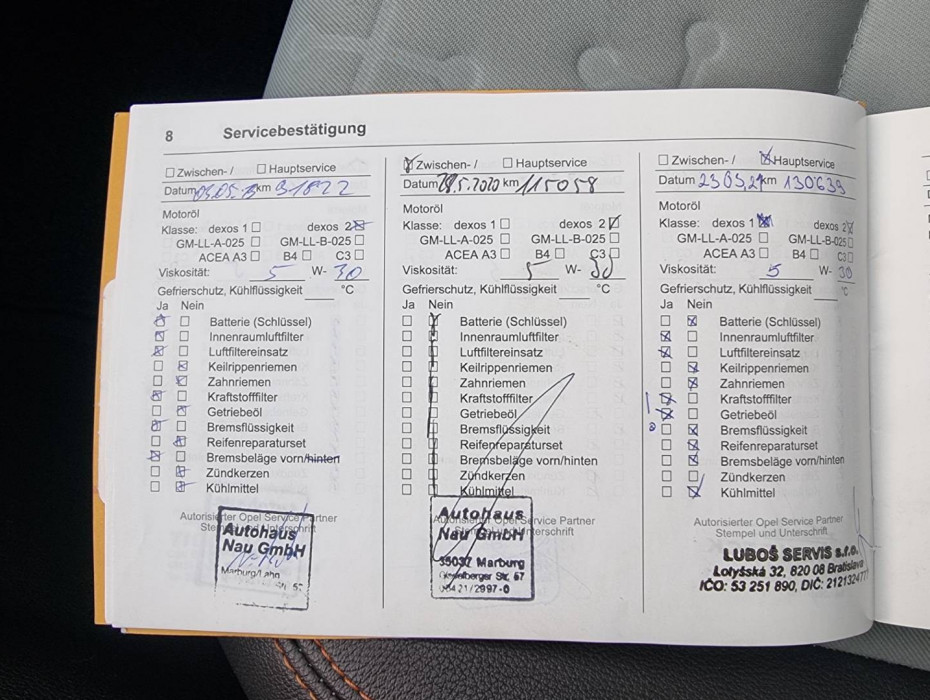 8 Servicebestätigung
☐ Zwischen- / ☐ Hauptservice
Datum km 91822
Motoröl
Klasse: dexos 1 ☐ dexos 2 ☒
GM-LL-A-025 ☐ GM-LL-B-025 ☐
ACEA A3 ☐ B4 ☐ C3 ☐
Viskosität: 5 W- 30
Gefrierschutz, Kühlflüssigkeit ____ °C
Ja Nein
☒ ☐ Batterie (Schlüssel)
☒ ☐ Innenraumluftfilter
☒ ☐ Luftfiltereinsatz
☐ ☒ Keilrippenriemen
☐ ☒ Zahnriemen
☒ ☐ Kraftstofffilter
☐ ☒ Getriebeöl
☒ ☐ Bremsflüssigkeit
☐ ☒ Reifenreparaturset
☒ ☐ Bremsbeläge vorn/hinten
☐ ☒ Zündkerzen
☐ ☒ Kühlmittel
Autorisierter Opel Service Partner
Stempel und Unterschrift
Autohaus
Nau GmbH
Marburg/Lahn
☒ Zwischen- / ☐ Hauptservice
Datum 28.5.2020 km 115058
Motoröl
Klasse: dexos 1 ☐ dexos 2 ☒
GM-LL-A-025 ☐ GM-LL-B-025 ☐
ACEA A3 ☐ B4 ☐ C3 ☐
Viskosität: 5 W- 30
Gefrierschutz, Kühlflüssigkeit ____ °C
Ja Nein
☐ ☒ Batterie (Schlüssel)
☐ ☐ Innenraumluftfilter
☐ ☐ Luftfiltereinsatz
☐ ☐ Keilrippenriemen
☐ ☐ Zahnriemen
☐ ☐ Kraftstofffilter
☐ ☐ Getriebeöl
☐ ☐ Bremsflüssigkeit
☐ ☐ Reifenreparaturset
☐ ☐ Bremsbeläge vorn/hinten
☐ ☐ Zündkerzen
☐ ☐ Kühlmittel
Autorisierter Opel Service Partner
Stempel und Unterschrift
Autohaus
Nau GmbH
35037 Marburg
Str. 67
06421/2997-0
☐ Zwischen- / ☒ Hauptservice
Datum 23 05 21 km 130639
Motoröl
Klasse: dexos 1 ☒ dexos 2 ☒
GM-LL-A-025 ☐ GM-LL-B-025 ☐
ACEA A3 ☐ B4 ☐ C3 ☐
Viskosität: 5 W- 30
Gefrierschutz, Kühlflüssigkeit ____ °C
Ja Nein
☐ ☒ Batterie (Schlüssel)
☒ ☐ Innenraumluftfilter
☒ ☐ Luftfiltereinsatz
☐ ☒ Keilrippenriemen
☐ ☒ Zahnriemen
! ☒ ☐ Kraftstofffilter
☒ ☐ Getriebeöl
☐ ☒ Bremsflüssigkeit
☐ ☒ Reifenreparaturset
☐ ☒ Bremsbeläge vorn/hinten
☐ ☐ Zündkerzen
☐ ☒ Kühlmittel
Autorisierter Opel Service Partner
Stempel und Unterschrift
LUBOŠ SERVIS s.r.o.
Lotyšská 32, 820 08 Bratislava
IČO: 53 251 890, DIČ: